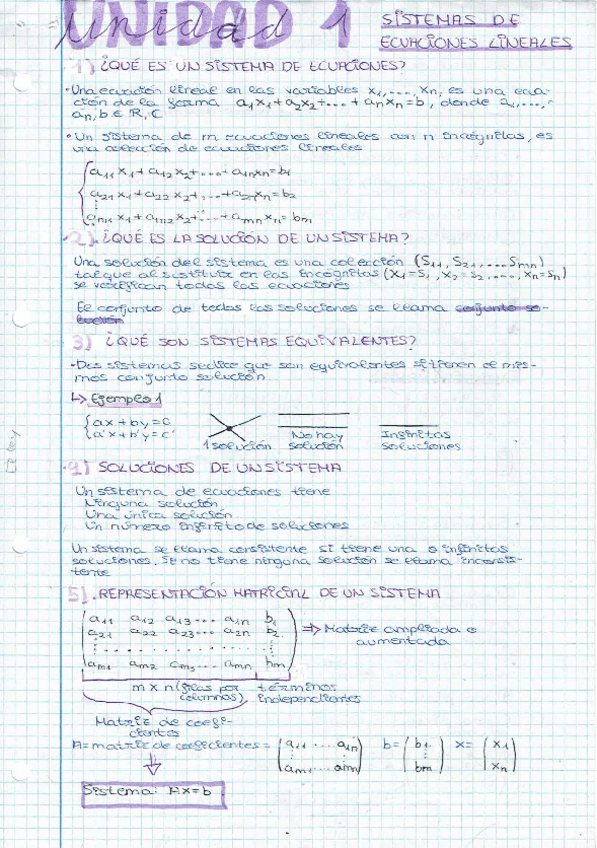 Unidad 1
SISTEMAS DE
ECUACIONES LINEALES
1) ¿QUÉ ES UN SISTEMA DE ECUACIONES?
• Una ecuación lineal en las variables x₁,...,xn, es una ecua-
ción de la forma a₁x₁+a₂x₂+...+anxn=b, donde a₁,...,
an,b ∈ R, C
• Un sistema de m ecuaciones lineales con n incógnitas, es
una colección de ecuaciones lineales
a₁₁x₁+a₁₂x₂+...+a₁nxn=b₁
a₂₁x₁+a₂₂x₂+...+a₂nxn=b₂
⋮
am₁x₁+am₂x₂+...+amnxn=bm
2) ¿QUÉ ES LA SOLUCIÓN DE UN SISTEMA?
Una solución del sistema es una colección (S₁₁, S₂₁,....Smn)
tal que al sustituir en las incógnitas (x₁=S₁, x₂=S₂....,xn=Sn)
se verifican todas las ecuaciones
El conjunto de todas las soluciones se llama conjunto so-
lución
3) ¿QUÉ SON SISTEMAS EQUIVALENTES?
• Dos sistemas se dice que son equivalentes si tienen el mis-
mos conjunto solución
↳ Ejemplo 1
ax+by=c
a'x+b'y=c'
1 solución
No hay
solución
Infinitas
soluciones
4) SOLUCIONES DE UN SISTEMA
Un sistema de ecuaciones tiene
Ninguna solución
Una única solución
Un número infinito de soluciones
Un sistema se llama consistente si tiene una o infinitas
soluciones. Si no tiene ninguna solución se llama inconsis-
tente
5) REPRESENTACIÓN MATRICIAL DE UN SISTEMA
a₁₁ a₁₂ a₁₃... a₁n b₁
a₂₁ a₂₂ a₂₃... a₂n b₂
⇒ Matriz ampliada o
aumentada
am₁ am₂ am₃... amn bm
m x n (filas por
columnas)
términos
independientes
Matriz de coefi-
cientes
A= matriz de coeficientes = (a₁₁ ... a₁n b= (b₁ x= (x₁
am₁... amn) bm) xn)
Sistema: Ax=b